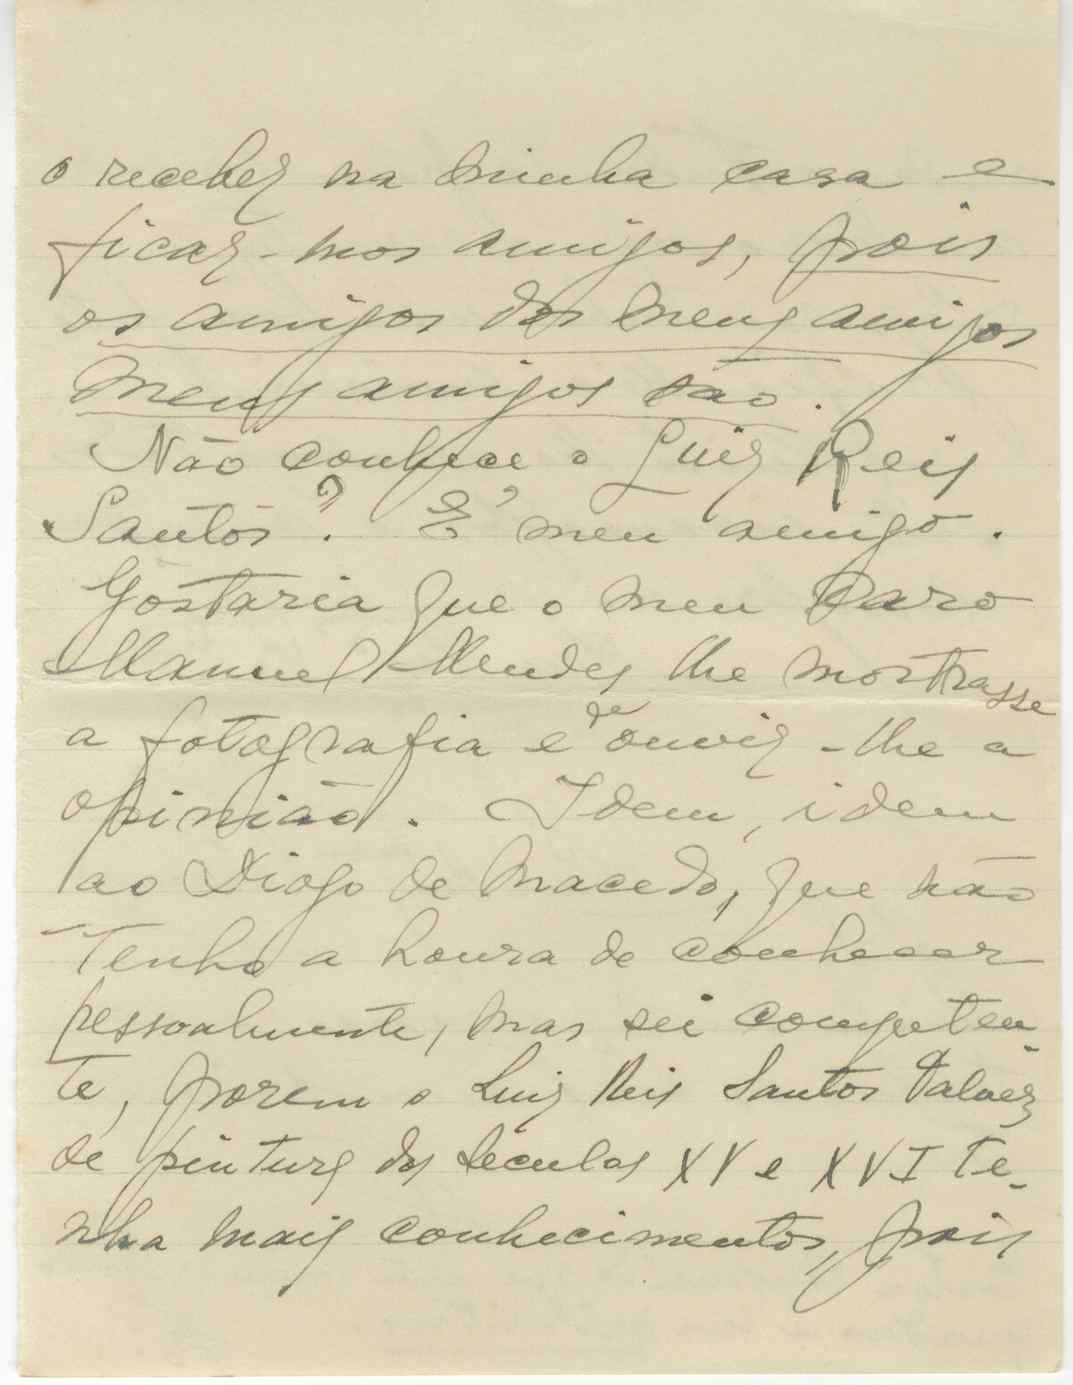 o receber na minha casa e
ficar-mos amigos, pois
os amigos dos meus amigos
meus amigos são.
Não conhece o Luiz Reis
Santos? E' meu amigo.
Gostaria que o meu Caro
Manuel Mendes lhe mostrasse
a fotografia e de ouvir-lhe a
opinião. Idem, idem
ao Diogo de Macedo, que não
tenho a honra de conhecer
pessoalmente, mas sei competen-
te, porem o Luiz Reis Santos talvez
de pintura dos séculos XV e XVI te-
nha mais conhecimentos, pois